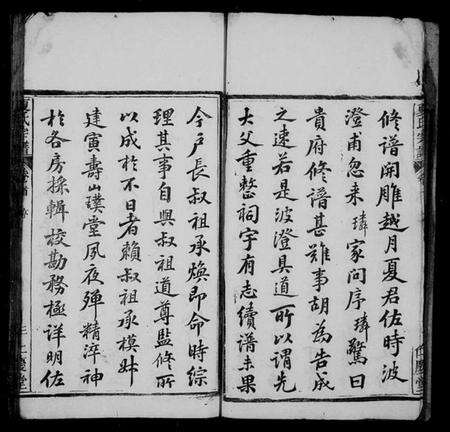 修譜開雕越月夏君佐時波
澄甫忽來璘家問序璘驚曰
貴府修譜甚難事胡為告成
之速若是波澄具道所以謂先
大父重整祠宇有志續譜未果
今戶長叔祖承煥即命時綜
理其事自與叔祖道尊監修所
以成於不日者賴叔祖承模姊
達寅壽山璞堂夙夜殫精淬神
於各房採輯校勘務極詳明佐